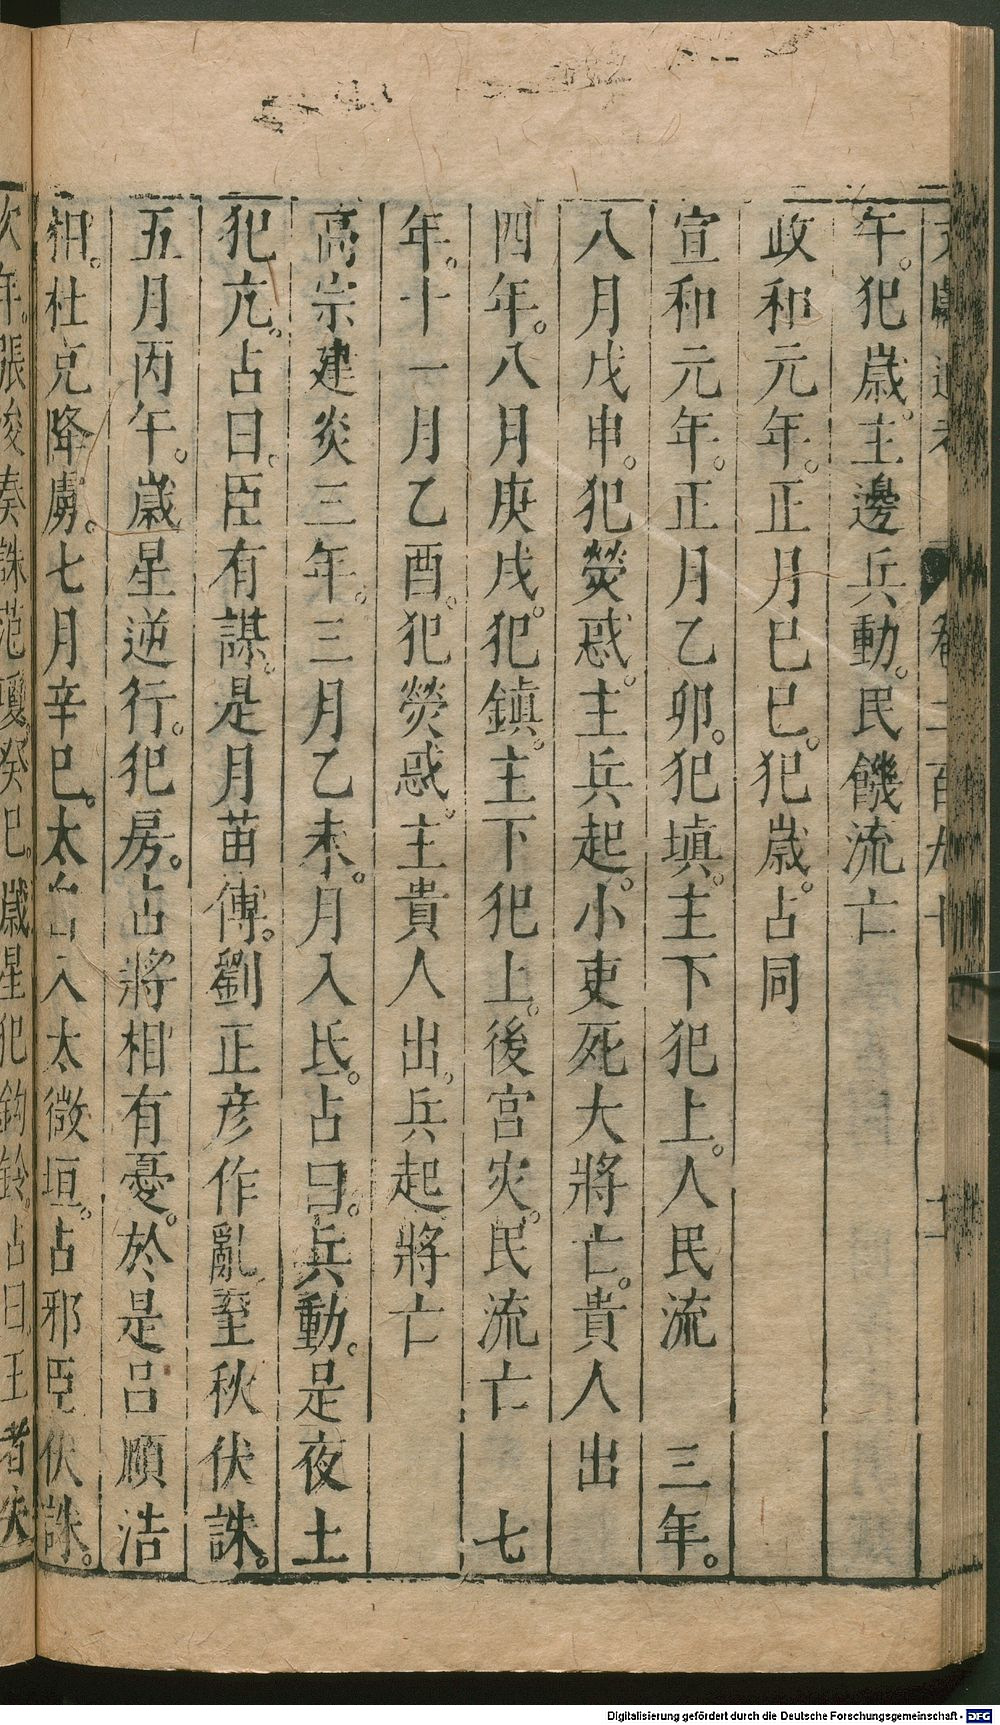 文獻通考 卷二百九十 十二
午。犯歲。主邊兵動。民饑流亡
政和元年。正月巳巳。犯歲。占同
宣和元年。正月乙卯。犯塡。主下犯上。人民流 三年。
八月戊申。犯熒惑。主兵起。小吏死大將亡。貴人出
四年。八月庚戌。犯鎮。主下犯上。後宮灾。民流亡 七
年。十一月乙酉。犯熒惑。主貴人出。兵起將亡
高宗建炎三年。三月乙未。月入氐。占曰。兵動。是夜土
犯亢。占曰。臣有謀。是月苗傅。劉正彥作亂。至秋伏誅。
五月丙午。歲星逆行。犯房。占將相有憂。於是呂順浩
相。杜克降虜。七月辛巳。太白入太微垣。占邪臣伏誅。
次年。張浚奏誅范瓊。癸巳。歲星犯鉤鈐。占曰。王者失
Digitalisierung gefördert durch die Deutsche Forschungsgemeinschaft - DFG